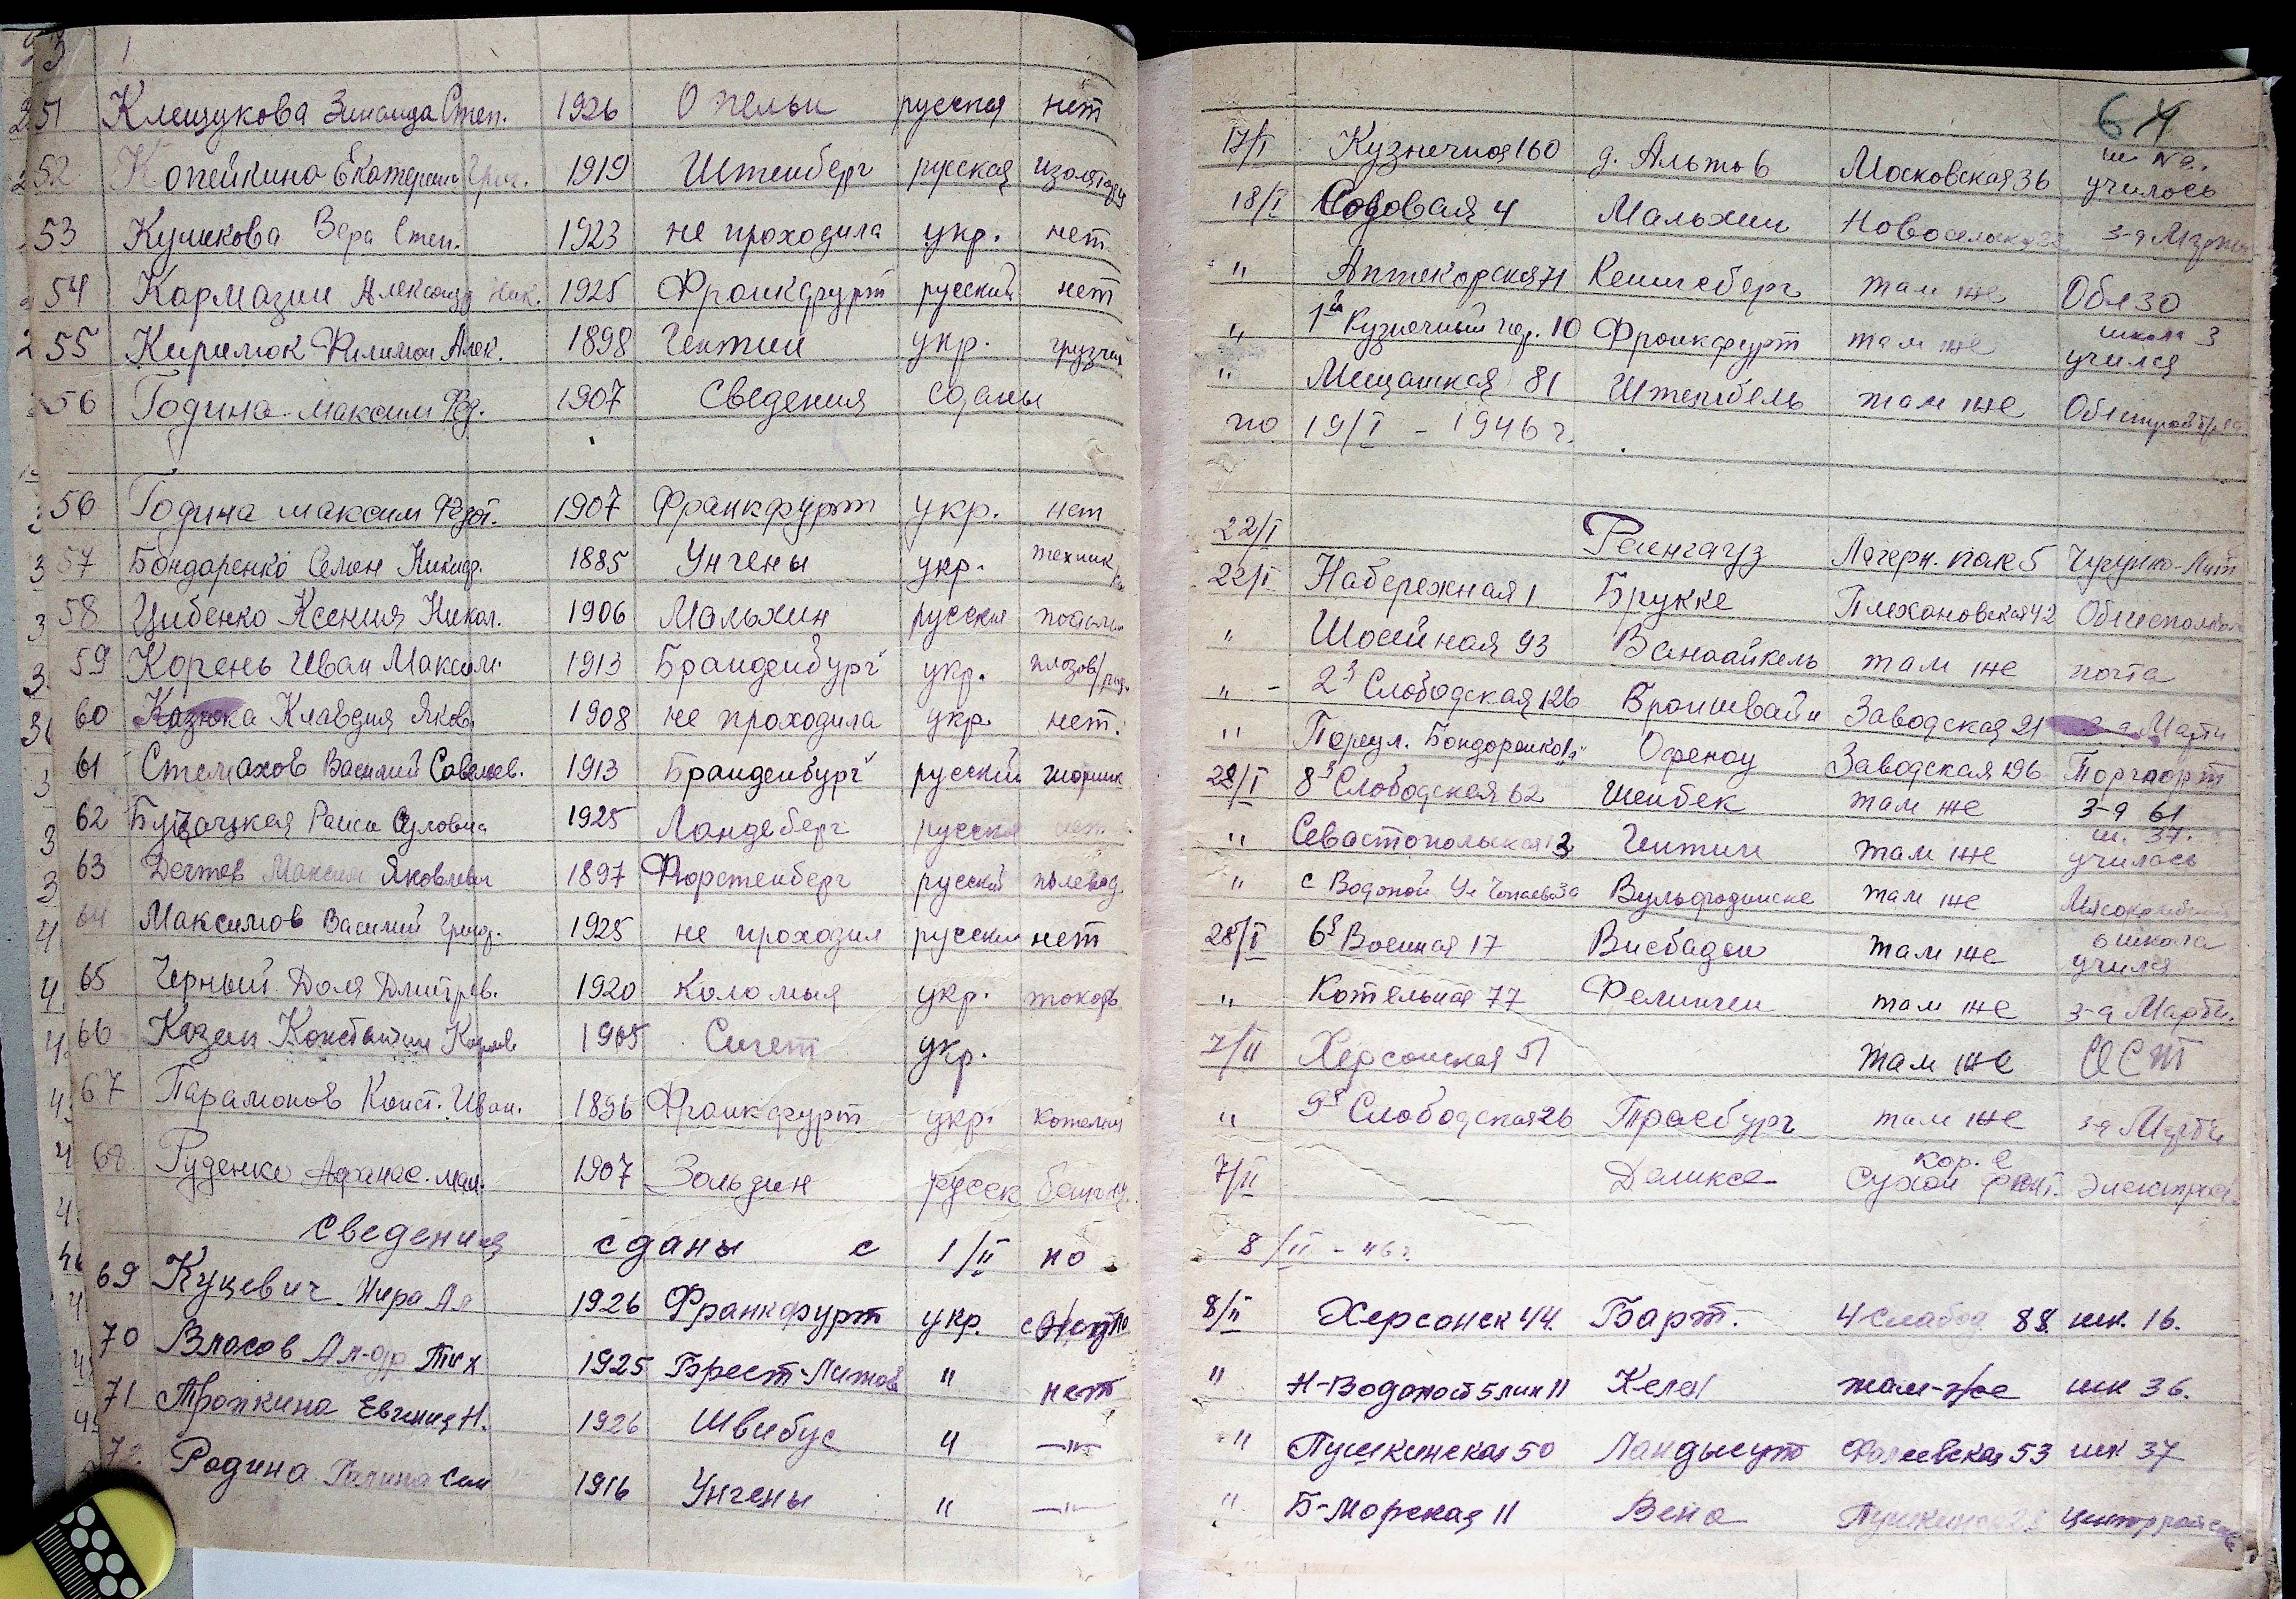 51 Клещукова Зинаида Степ. 1926 Опельн русская нет
52 Копейкина Екатерина Григ. 1919 Штенберг русская
53 Куликова Вера Степ. 1923 не проходила укр. нет
54 Кармазин Александр Ник. 1925 Франкфурт русский нет
55 Кирилюк Филимон Алек. 1898 Чентин укр. грузчик
56 Година Максим Фед. 1907 Сведения сданы
56 Година Максим Федот. 1907 Франкфурт укр. нет
57 Бондаренко Семен Никиф. 1885 Унгены укр. техник
58 Цибенко Ксения Никол. 1906 Мальхин русская
59 Корень Иван Максим. 1913 Бранденбург укр.
60 Казюка Клавдия Яков. 1908 не проходила укр. нет.
61 Стемахов Василий Савельев. 1913 Бранденбург русский шорник
62 Раиса 1925 Ландсберг русская нет.
63 Дегтев Максим Яковлевич 1897 Фюрстенберг русский полевод
64 Максимов Василий Григ. 1925 не проходил русский нет
65 Черный Доля Дмитрев. 1920 Коломыя укр. токарь
66 Казак Константин 1905 Сигет укр.
67 Парамонов Конст. Иван. 1896 Франкфурт укр.
68 Руденко Афанас. Мак. 1907 Зольдин русск
Сведения сданы с 1/II по
69 Куцевич Нира Ал 1926 Франкфурт укр.
70 Власов Ал-др Тих 1925 Брест-Литов " нет
71 Тропкина Евгения Н. 1926 Швибус " —"—
72 Родина Галина Сам 1916 Унгены " —"—
64
17/I Кузнечная 160 д. Альтов Московская 36 училась
18/I Садовая 4 Мальхин
" Аптекарская 71 Кенигсберг там же Облзо
" 1й Кузнечный пер. 10 Франкфурт там же школа 3 учился
" Мещанская 81 Штенбель там же
по 19/I – 1946 г.
22/I Ренгауз Лагерн. пак 5
22/I Набережная 1 Брукке Плехановская 42 Облисполком
" Шосейная 93 Ванайкель там же почта
" – 2я Слободская 126 Броншвайн Заводская 21 з-д Марти
" Переул. Бондаренко Офенау Заводская 196 Торгпорт
28/I 8я Слободская 62 Шенбек там же з-д 61
" Севастопольская 3 Чентин там же ш. 37. училась
" с Водопой Ул Чапаева 3а там же
28/I 6я Военная 17 Висбаден там же 6 школа учился
" Котельная 77 Фелинген там же з-д Марти.
7/II Херсонская 51 там же
" 9я Слободская 26 Трасбург там же з-д Марти
7/II Деликсе кор. 2 Сухой фонт.
8/II – 46 г.
8/II Херсонск 44. Барт. 4 слабод 88. шк. 16.
" Н-Водопой 5 лин 11 Келен там-же шк 36.
" Пушкинская 50 Ландысуто Фалеевская 53 шк 37
" Б-Морская 11 Вена